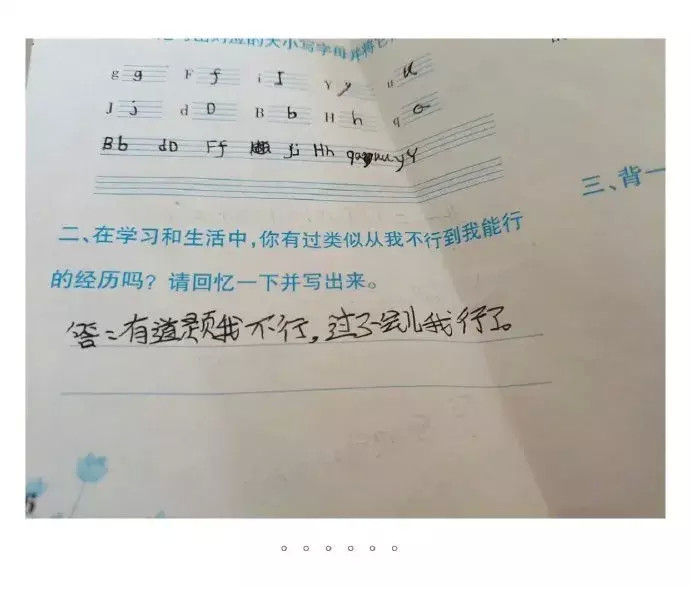 出对应的大小写字母并将它
g g F f i I Y y u u
J j d D B b H h q a
Bb dD Ff Jj Hh yY
三、背一
二、在学习和生活中,你有过类似从我不行到我能行
的经历吗?请回忆一下并写出来。
答:有道题我不行,过了一会儿我行了。
6